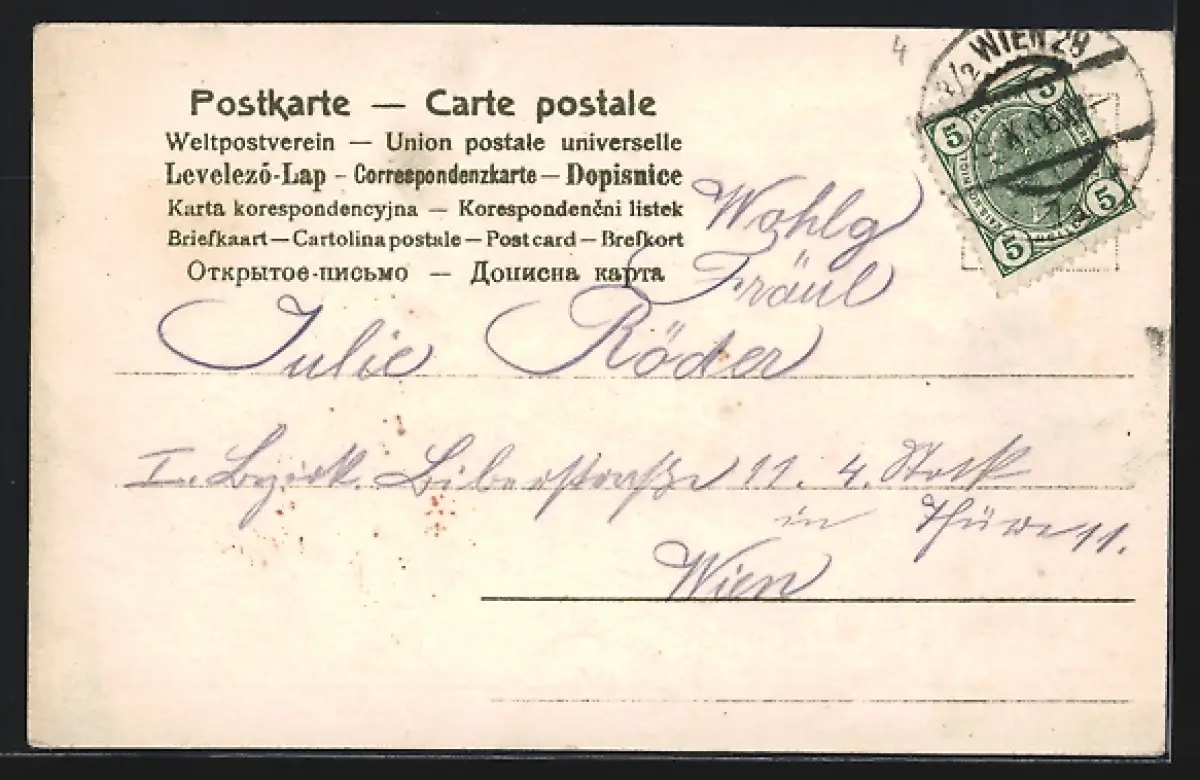 4
WIEN 29
5 5 5
Postkarte — Carte postale
Weltpostverein — Union postale universelle
Levelező-Lap – Correspondenzkarte — Dopisnice
Karta korespondencyjna — Korespondenčni listek
Briefkaart — Cartolina postale — Post card — Brefkort
Открытое-письмо — Дописна карта
Wohlg
Fräul
Julie Röder
I. Bezirk. Biberstraße 11. 4. Stock
in Thüre 11.
Wien